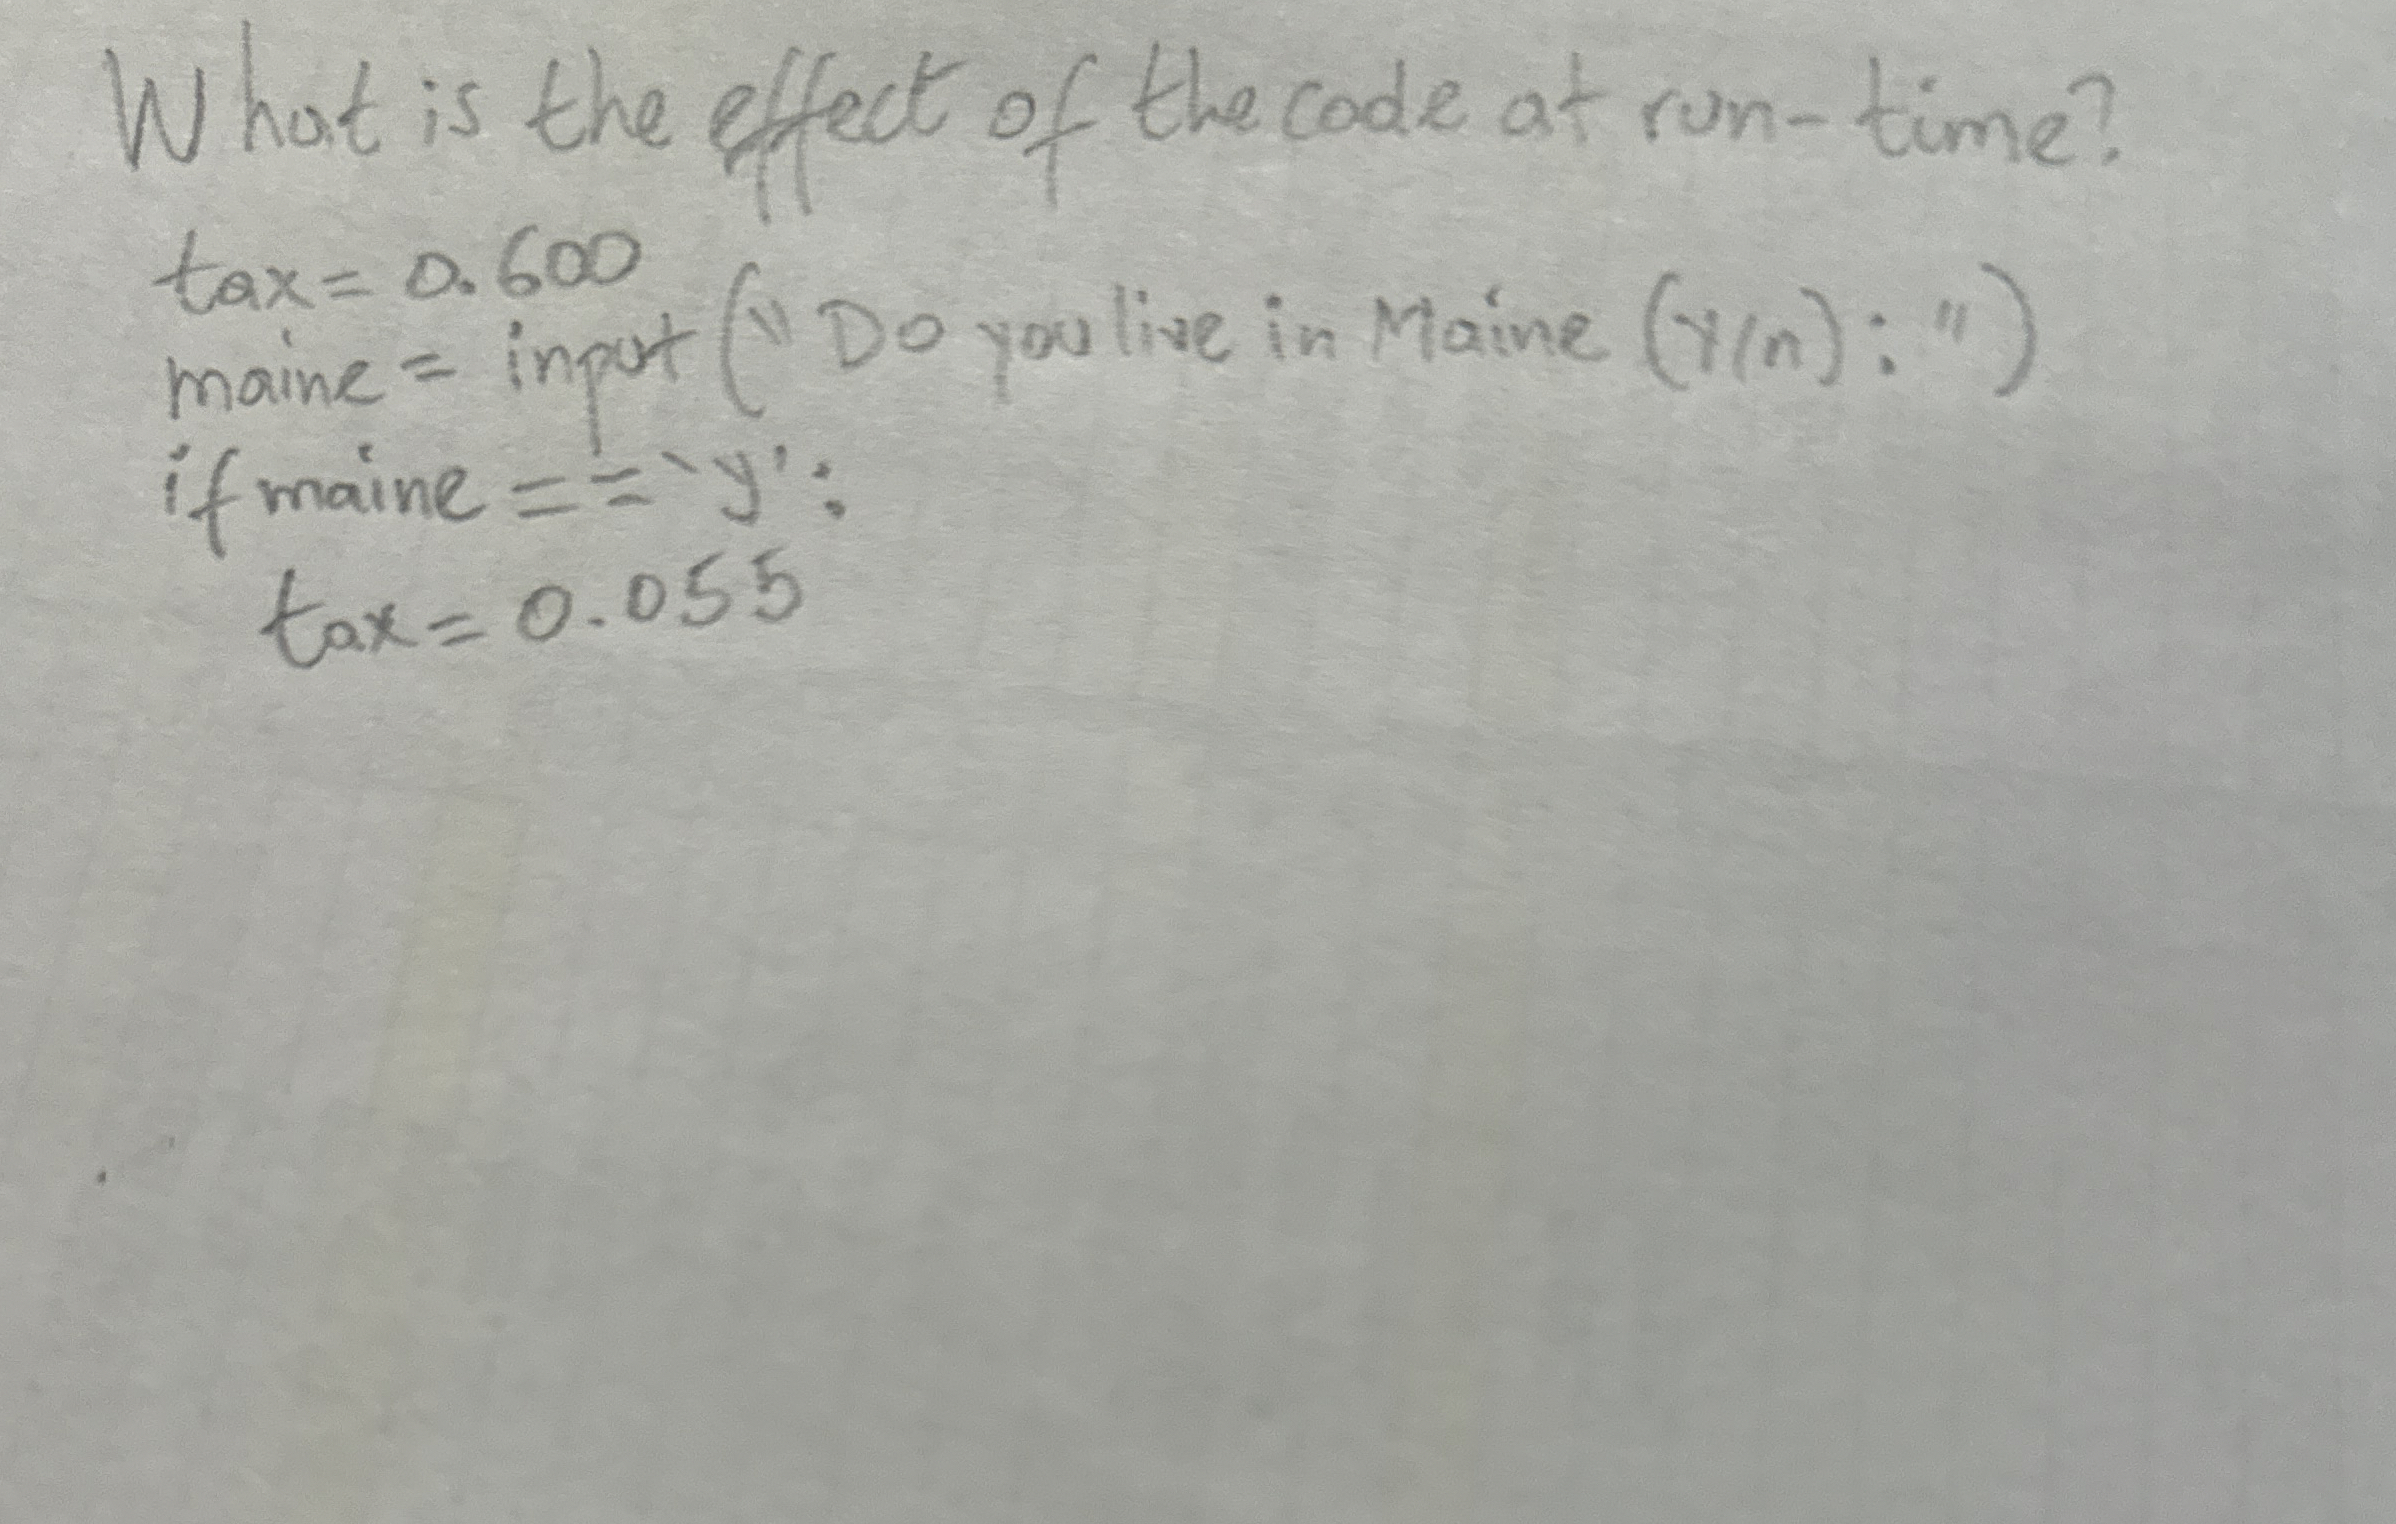 What is the effect of the code at run-time?
tax = 0.600
maine = input ("Do you live in Maine (Y/n): ")
if maine == 'y':
tax = 0.055